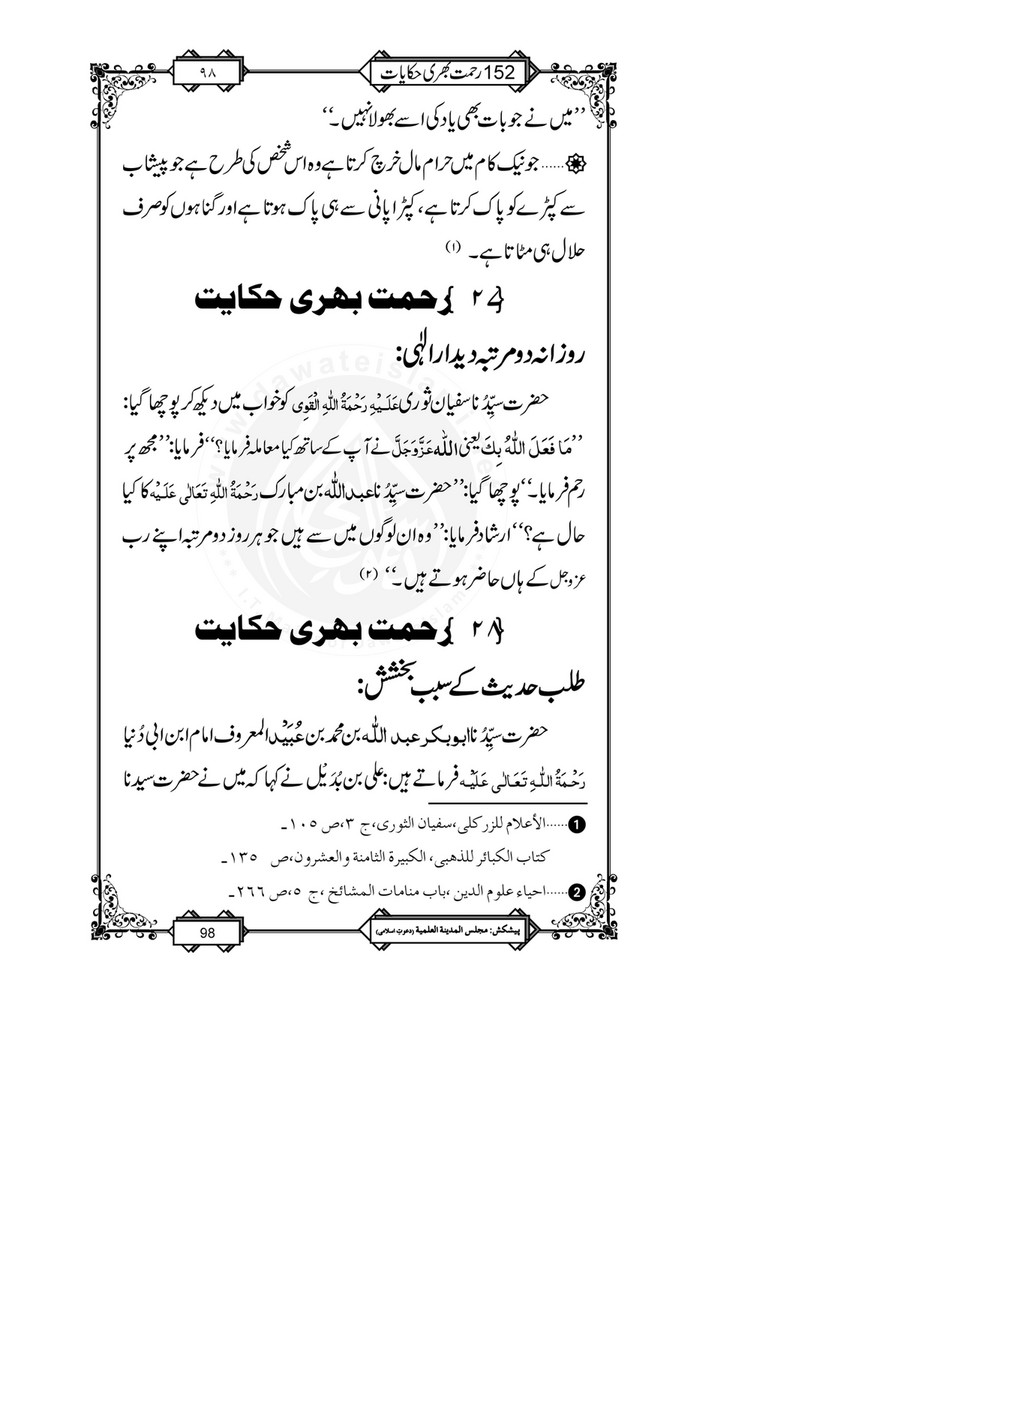 152 رحمت بھری حکایات
۹۸
’’میں نے جو بات بھی یاد کی اسے بھولا نہیں۔‘‘
......جو نیک کام میں حرام مال خرچ کرتا ہے وہ اس شخص کی طرح ہے جو پیشاب
سے کپڑے کو پاک کرتا ہے، کپڑا پانی سے ہی پاک ہوتا ہے اور گناہوں کو صرف
حلال ہی مٹاتا ہے۔ (۱)
{۲۷} رحمت بھری حکایت
روزانہ دو مرتبہ دیدارِ الٰہی:
حضرت سیِّدُنا سفیان ثوری عَلَیْہِ رَحْمَۃُ اللّٰہِ الْقَوِی کو خواب میں دیکھ کر پوچھا گیا:
’’مَا فَعَلَ اللّٰہُ بِکَ یعنی اللّٰہ عَزَّوَجَلَّ نے آپ کے ساتھ کیا معاملہ فرمایا؟‘‘ فرمایا: ’’مجھ پر
رحم فرمایا۔‘‘ پوچھا گیا: ’’حضرت سیِّدُنا عبداللّٰہ بن مبارک رَحْمَۃُ اللّٰہِ تَعَالٰی عَلَیْہ کا کیا
حال ہے؟‘‘ ارشاد فرمایا: ’’وہ ان لوگوں میں سے ہیں جو ہر روز دو مرتبہ اپنے رب
عزوجل کے ہاں حاضر ہوتے ہیں۔‘‘ (۲)
{۲۸} رحمت بھری حکایت
طلب حدیث کے سبب بخشش:
حضرت سیِّدُنا ابوبکر عبد اللّٰہ بن محمد بن عُبَیْد المعروف امام ابن ابی دُنیا
رَحْمَۃُ اللّٰہِ تَعَالٰی عَلَیْہ فرماتے ہیں: علی بن بُدَیْل نے کہا کہ میں نے حضرت سیدنا
1......الأعلام للزرکلی، سفیان الثوری، ج ۳، ص ۱۰۵۔
کتاب الکبائر للذھبی، الکبیرۃ الثامنۃ والعشرون، ص ۱۳۵۔
2......احیاء علوم الدین، باب منامات المشائخ، ج ۵، ص ۲۶۶۔
پیشکش: مجلس المدینۃ العلمیۃ (دعوتِ اسلامی)
98